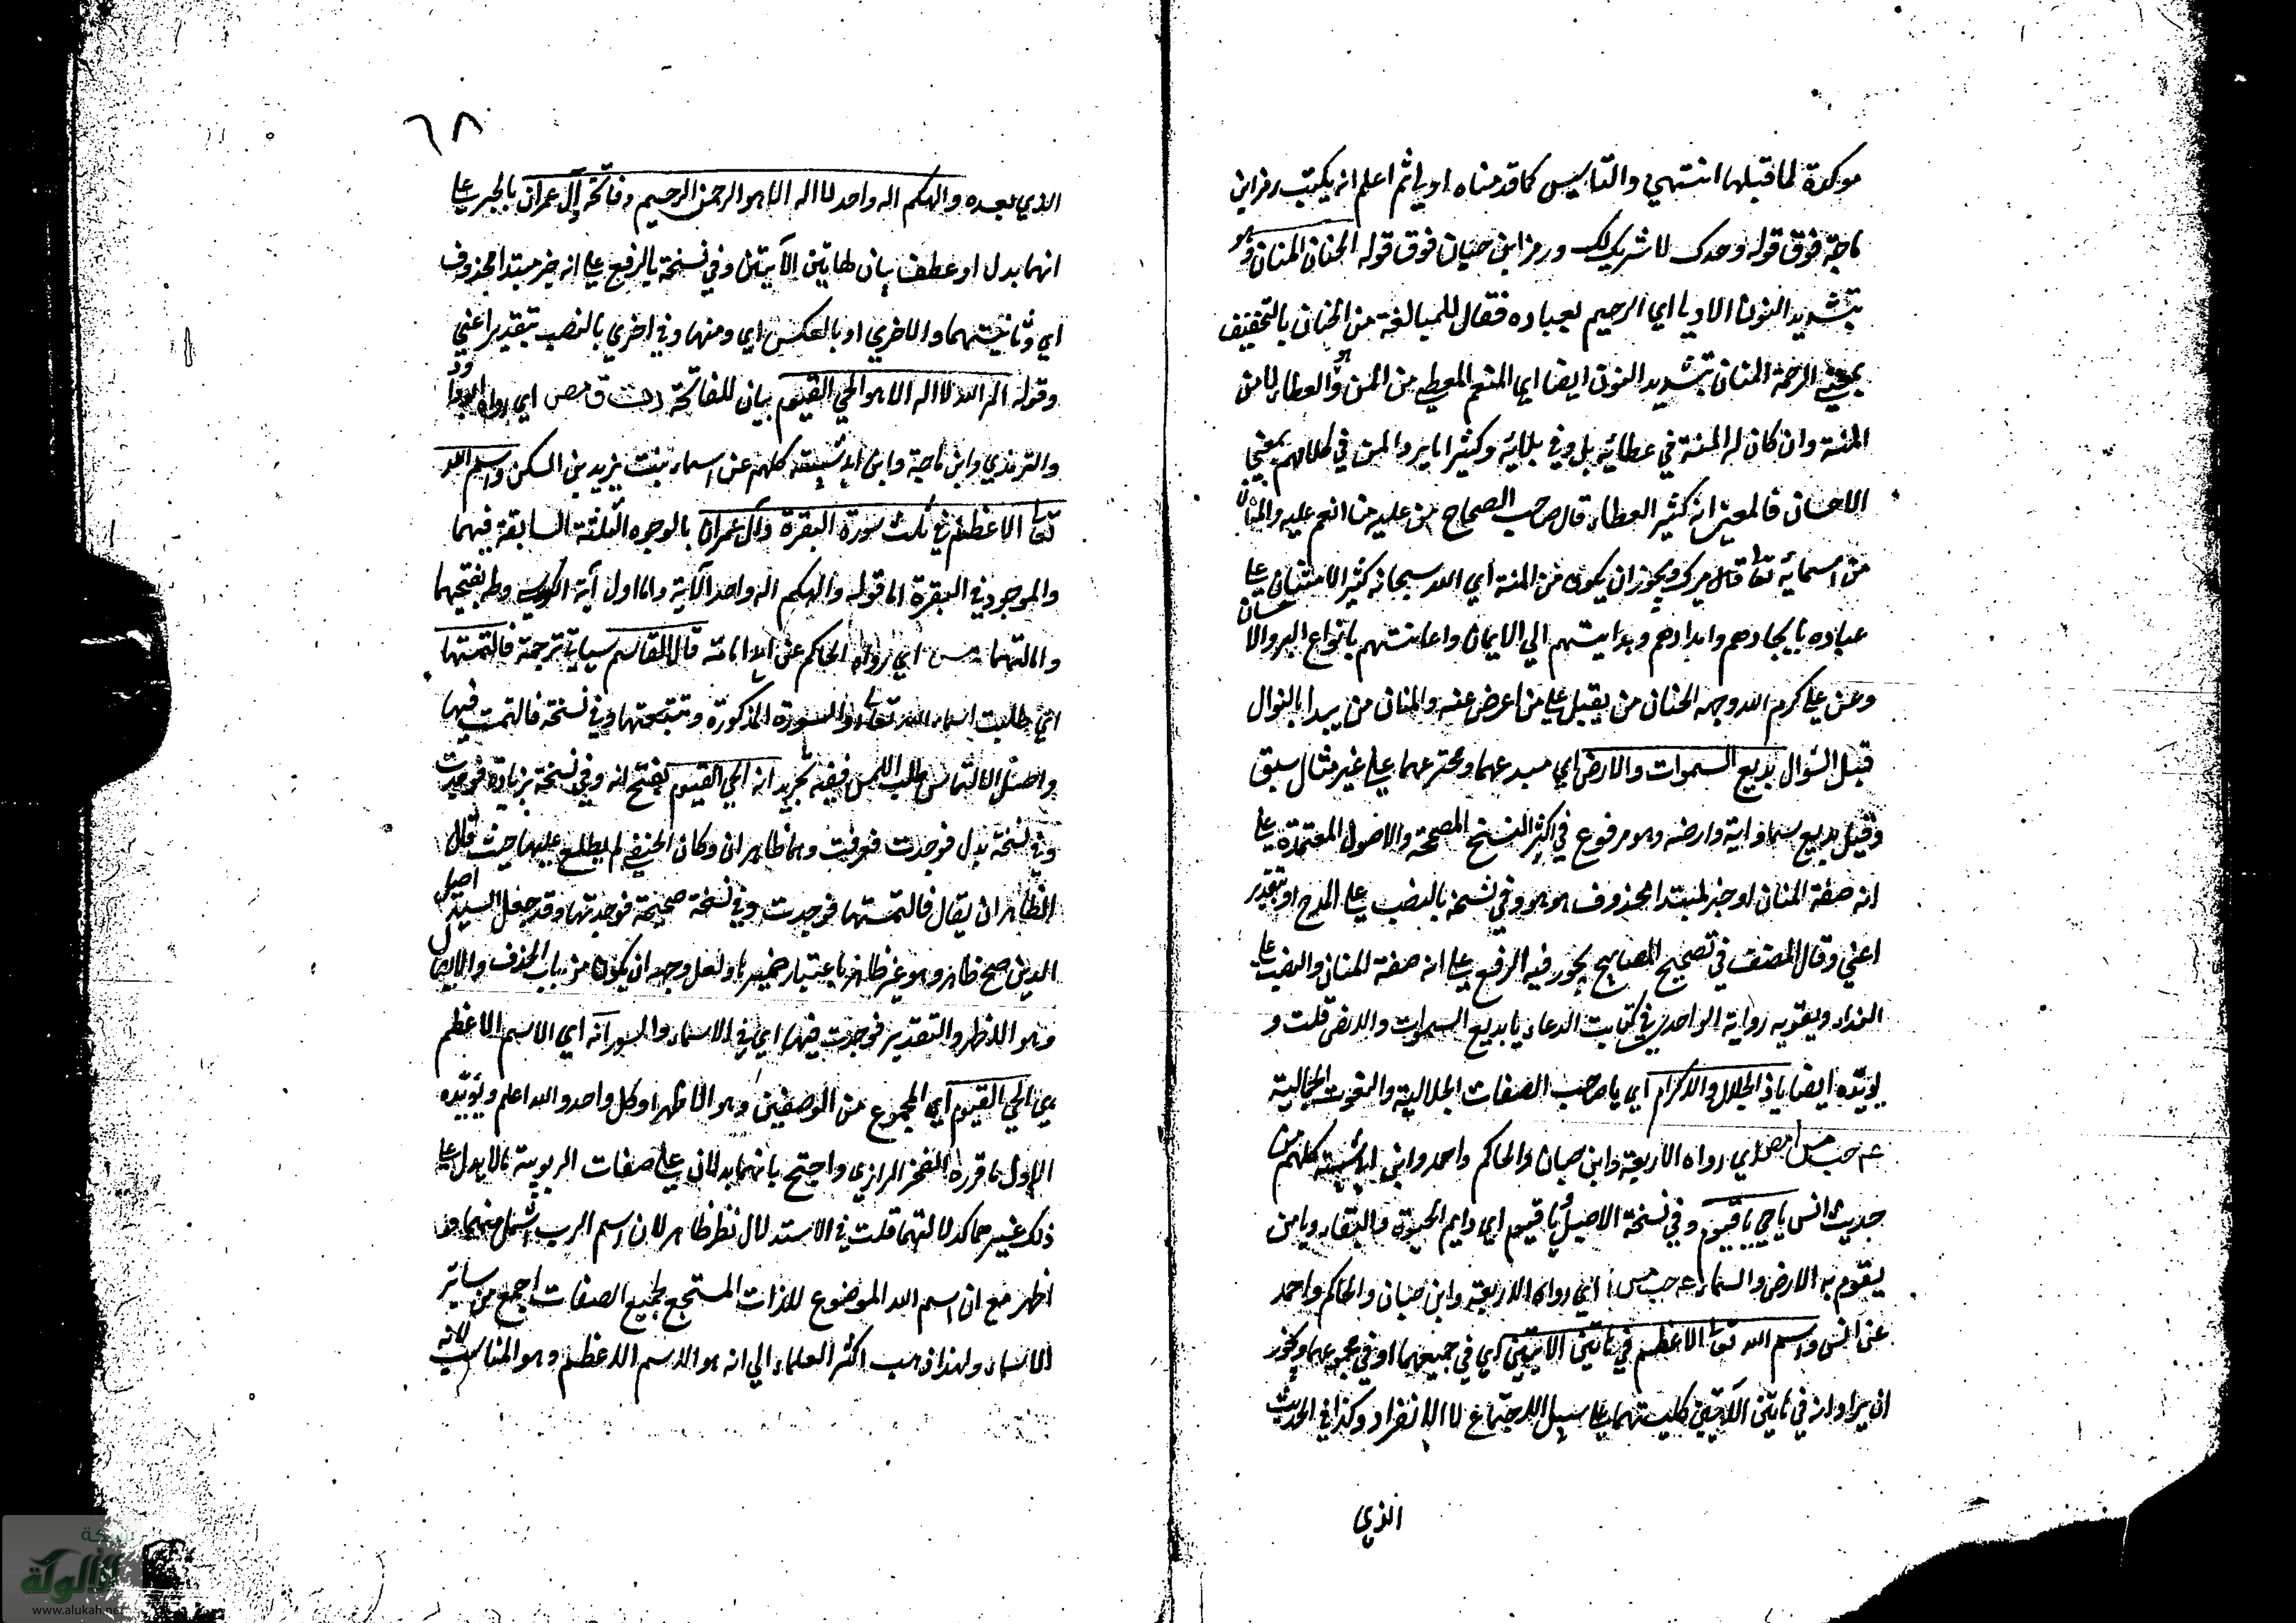 موكدة لما قبلها انتهي والتاسيس كما قدمناه اولي ثم اعلم انه يكتب رمز ابن
ماجة فوق قوله وحدك لا شريك لك ورمز ابن حبان فوق قوله الحنان المنان وهو
بتشديد النون الاولي اي الرحيم بعباده فعال للمبالغة من الحنان بالتخفيف
بمعني الرحمة المنان بتشديد النون ايضا اي المنعم المعطي من المن وهو العطاء لا من
المنة وان كان له المنة في عطائه بل وفي بلائه وكثيرا ما يرد المن في كلامهم بمعني
الاحسان فالمعني انه كثير العطاء قال صاحب الصحاح من عليه منا انعم عليه والمنان
من اسمائه تعالي قال ميرك ويجوز ان يكون من المنة اي الله سبحانه كثير الامتنان علي
عباده بايجادهم وامدادهم وهدايتهم الي الايمان واعانتهم بانواع البر والاحسان
وعن علي كرم الله وجهه الحنان من يقبل علي من اعرض عنه والمنان من يبدا بالنوال
قبل السؤال بديع السموات والارض اي مبدعهما ومخترعهما علي غير مثال سبق
وقيل بديع سماواته وارضه وهو مرفوع في اكثر النسخ المصححة والاصول المعتمدة علي
انه صفة المنان او خبر لمبتدا محذوف هو هو وفي نسخة بالنصب علي المدح او بتقدير
اعني وقال المصنف في تصحيح المصابيح يجوز فيه الرفع علي انه صفة المنان والنصب علي
النداء ويقويه رواية الواحدي في كتابه الدعاء يا بديع السموات والارض قلت و
يويده ايضا يا ذا الجلال والاكرام اي يا صاحب الصفات الجلالية والنعوت الجمالية
عه حب مس ا مص اي رواه الاربعة وابن حبان والحاكم واحمد وابن ابي شيبة كلهم من
حديث انس يا حي يا قيوم وفي نسخة الاصيل يا قيوم اي دايم الحيوة والبقاء ويا من
يقوم به الارض والسماء عه حب مس ا اي رواه الاربعة وابن حبان والحاكم واحمد
عن انس واسم الله تعالي الاعظم في هاتين الايتين اي في جميعهما او في مجموعهما ويجوز
ان يراد انه في هاتين الآيتين كليتهما علي سبيل الاجتماع لا الانفراد وكذا في الحديث
الذي
٦٨
الذي بعده والهكم اله واحد لا اله الا هو الرحمن الرحيم وفاتحة آل عمران بالجر علي
انهما بدل او عطف بيان لهاتين الآيتين وفي نسخة بالرفع علي انه خبر مبتدا محذوف
اي وثانيتهما والاخري او بالعكس اي ومنها وفي اخري بالنصب بتقدير اعني
وقوله الم الله لا اله الا هو الحي القيوم بيان للفاتحة د ت ق مص اي رواه ابو داود
والترمذي وابن ماجة وابن ابي شيبة كلهم عن اسماء بنت يزيد بن السكن واسم الله
تعالي الاعظم في ثلث سورة البقرة وآل عمران بالوجوه الثلثة السابقة فيهما
والموجود في البقرة اما قوله والهكم اله واحد الآية واما اول آية الكرسي وطه بفتحهما
وامالتهما مس اي رواه الحاكم عن ابي امامة قال القاسم سياتي ترجمة فالتمستها
اي طلبت اسماء الله تعالي او السورة المذكورة وتتبعتها وفي نسخة فالتمست فيها
واصل الالتماس طلب اللمس ففيه تجريد انه الحي القيوم بفتح انه وفي نسخة بزيادة فوجدت
وفي نسخة بدل فوجدت فعرفت وهما ظاهران وكان الحنفي لم يطلع عليهما حيث قال
الظاهر ان يقال فالتمستها فوجدت وفي نسخة صحيحة فوجدتها وقد جعل السيد اصيل
الدين صح ظاهر وهو غير ظاهر باعتبار ضميرها ولعل وجهه ان يكون من باب الحذف والايصال
وهو اللاظهر والتقدير فوجدت فيها اي في الاسماء والسور انه اي الاسم الاعظم
هي الحي القيوم اي المجموع من الوصفين وهو الاظهر او كل واحد والله اعلم ويؤيده
الاول ما قرره الفخر الرازي واحتج بانهما يدلان علي صفات الربوبية ما لا يدل علي
ذلك غيرهما كدلالتهما قلت في الاستدلال نظر ظاهر لان اسم الرب اشمل منهما
اظهر مع ان اسم الله الموضوع للذات المستجمع لجميع الصفات اجمع من ساير
الاسماء ولهذا ذهب اكثر العلماء الي انه هو الاسم الاعظم وهو المناسب لانه
شبكة
الألوكة
www.alukah.net